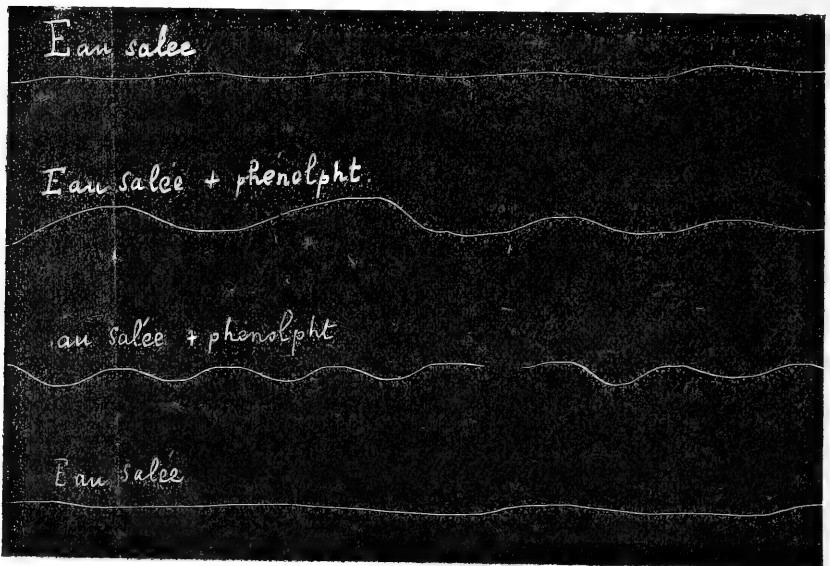 Eau salée
Eau salée + phénolpht.
au salée + phénolpht
Eau salée